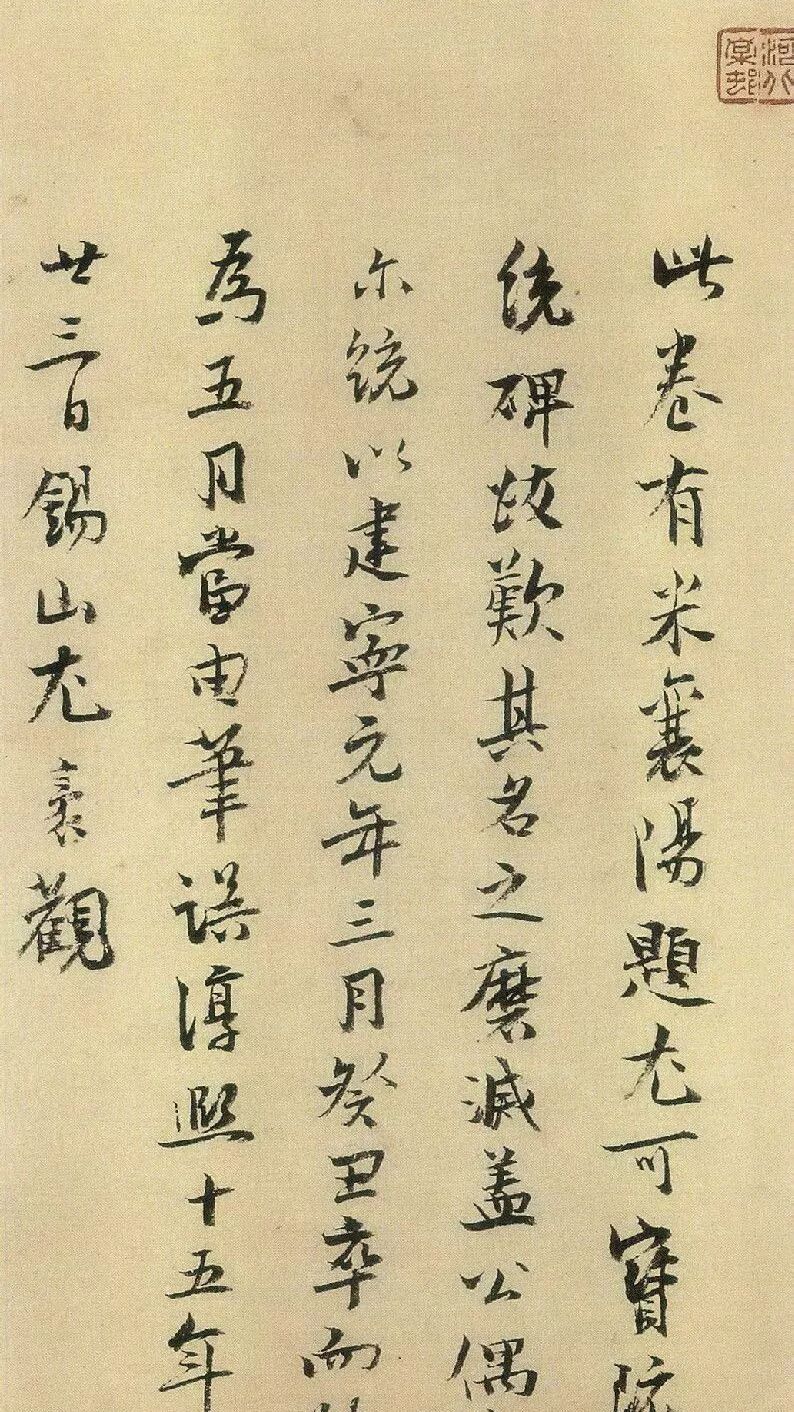 此卷有米襄陽題尤可寶
統碑故歎其名之磨滅蓋公偶
尔統以建寧元年三月癸丑卒而
為五月當由筆誤淳熙十五年
廿三日錫山尤袤觀